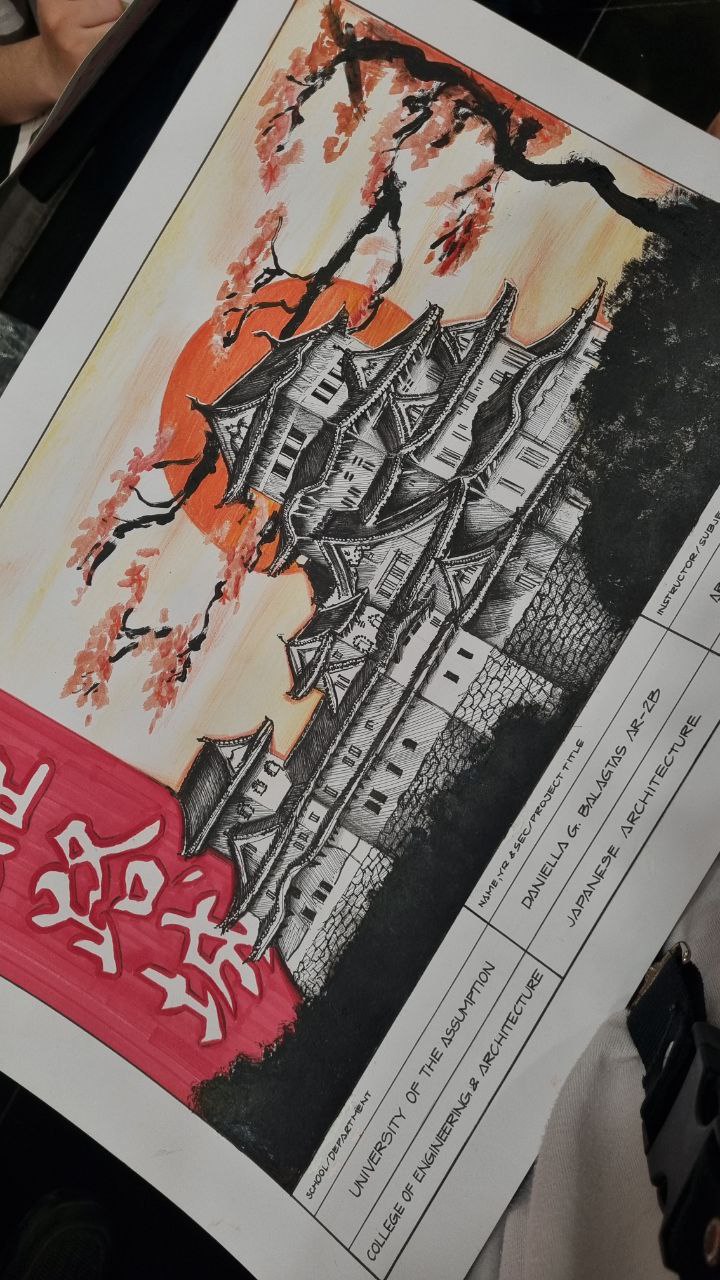 路城
SCHOOL/DEPARTMENT
UNIVERSITY OF THE ASSUMPTION
COLLEGE OF ENGINEERING & ARCHITECTURE
NAME,YR &SEC/PROJECT TITLE
DANIELLA G. BALAGTAS AR-2B
JAPANESE ARCHITECTURE
INSTRUCTOR/SUBJE